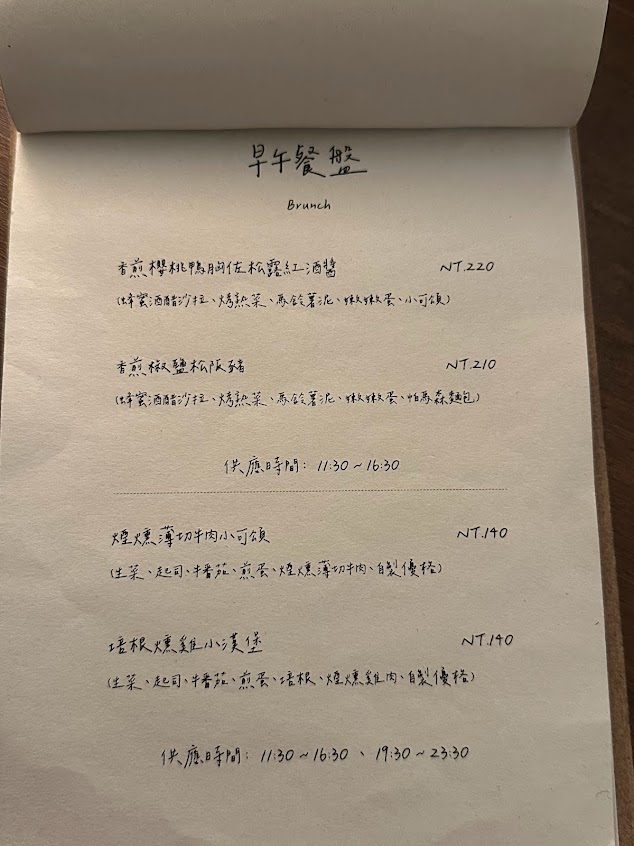 早午餐盤
Brunch
香煎櫻桃鴨胸佐松露紅酒醬 NT.220
(蜂蜜酒醋沙拉、烤熟菜、馬鈴薯泥、嫩嫩蛋、小可頌)
香煎椒鹽松阪豬 NT.210
(蜂蜜酒醋沙拉、烤熟菜、馬鈴薯泥、嫩嫩蛋、帕馬森麵包)
供應時間: 11:30~16:30
煙燻薄切牛肉小可頌 NT.140
(生菜、起司、牛番茄、煎蛋、煙燻薄切牛肉、自製優格)
培根燻雞小漢堡 NT.140
(生菜、起司、牛番茄、煎蛋、培根、煙燻雞肉、自製優格)
供應時間: 11:30~16:30、19:30~23:30